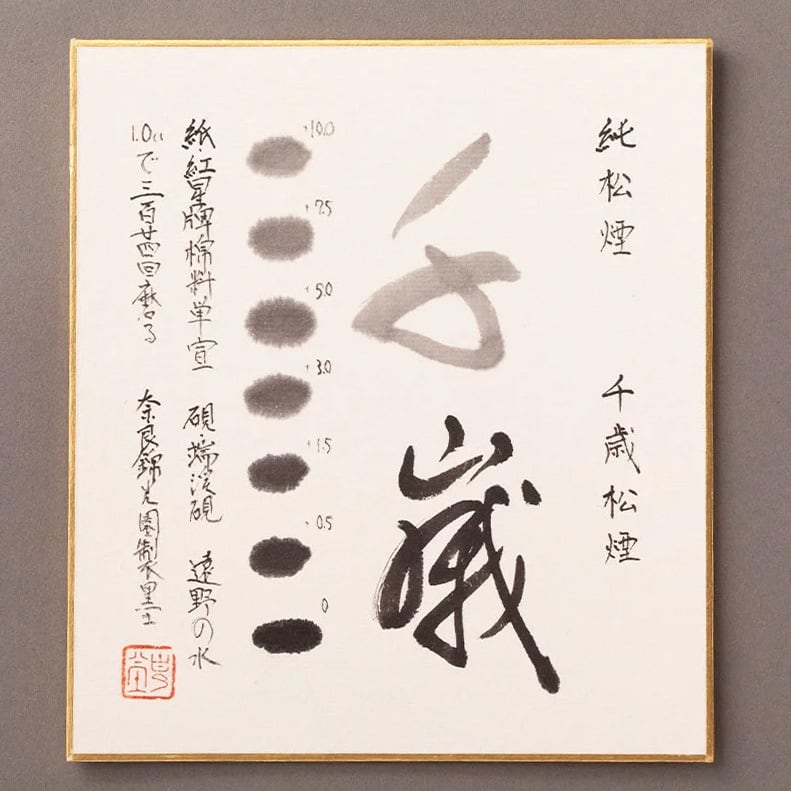 純松煙　千歳松煙
千歳
+10.0
+7.5
+5.0
+3.0
+1.5
+0.5
0
紙・紅星牌棉料単宣　硯・端渓硯　遠野の水
1.0ccで三百廿四回磨る　奈良錦光園製墨